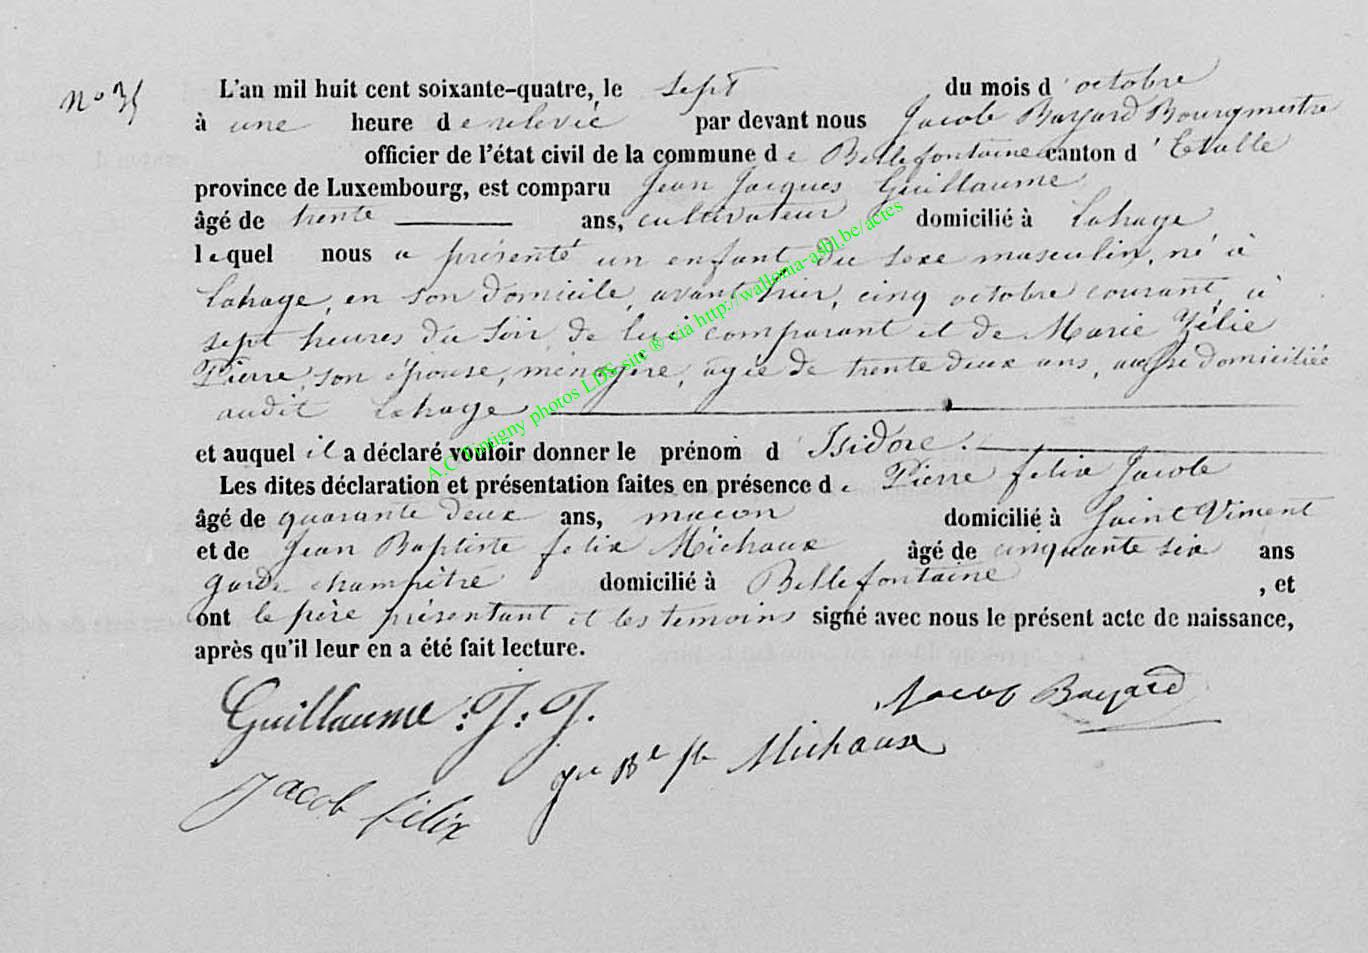 n° 35
L'an mil huit cent soixante-quatre, le sept du mois d'octobre
à une heure de relevée par devant nous Jacob Bayard Bourgmestre
officier de l'état civil de la commune de Bellefontaine canton d'Etalle
province de Luxembourg, est comparu Jean Jacques Guillaume
âgé de trente ans, cultivateur domicilié à Lahage
lequel nous a présenté un enfant du sexe masculin, né à
Lahage, en son domicile, avant hier, cinq octobre courant, à
sept heures du soir, de lui comparant et de Marie Zélie
Pierre, son épouse, ménagère, agée de trente deux ans, aussi domiciliée
audit Lahage
et auquel il a déclaré vouloir donner le prénom d'Isidore
Les dites déclaration et présentation faites en présence de Pierre felix Jacob
âgé de quarante deux ans, macon domicilié à Saint Vincent
et de Jean Baptiste felix Michaux âgé de cinquante six ans
garde champêtre domicilié à Bellefontaine , et
ont le père présentant et les temoins signé avec nous le présent acte de naissance,
après qu'il leur en a été fait lecture.
Guillaume : J : J. Jacob Bayard
Jacob félix Michaux
A.C Tintigny photos LDS site ® via http://wallonia-asbl.be/actes